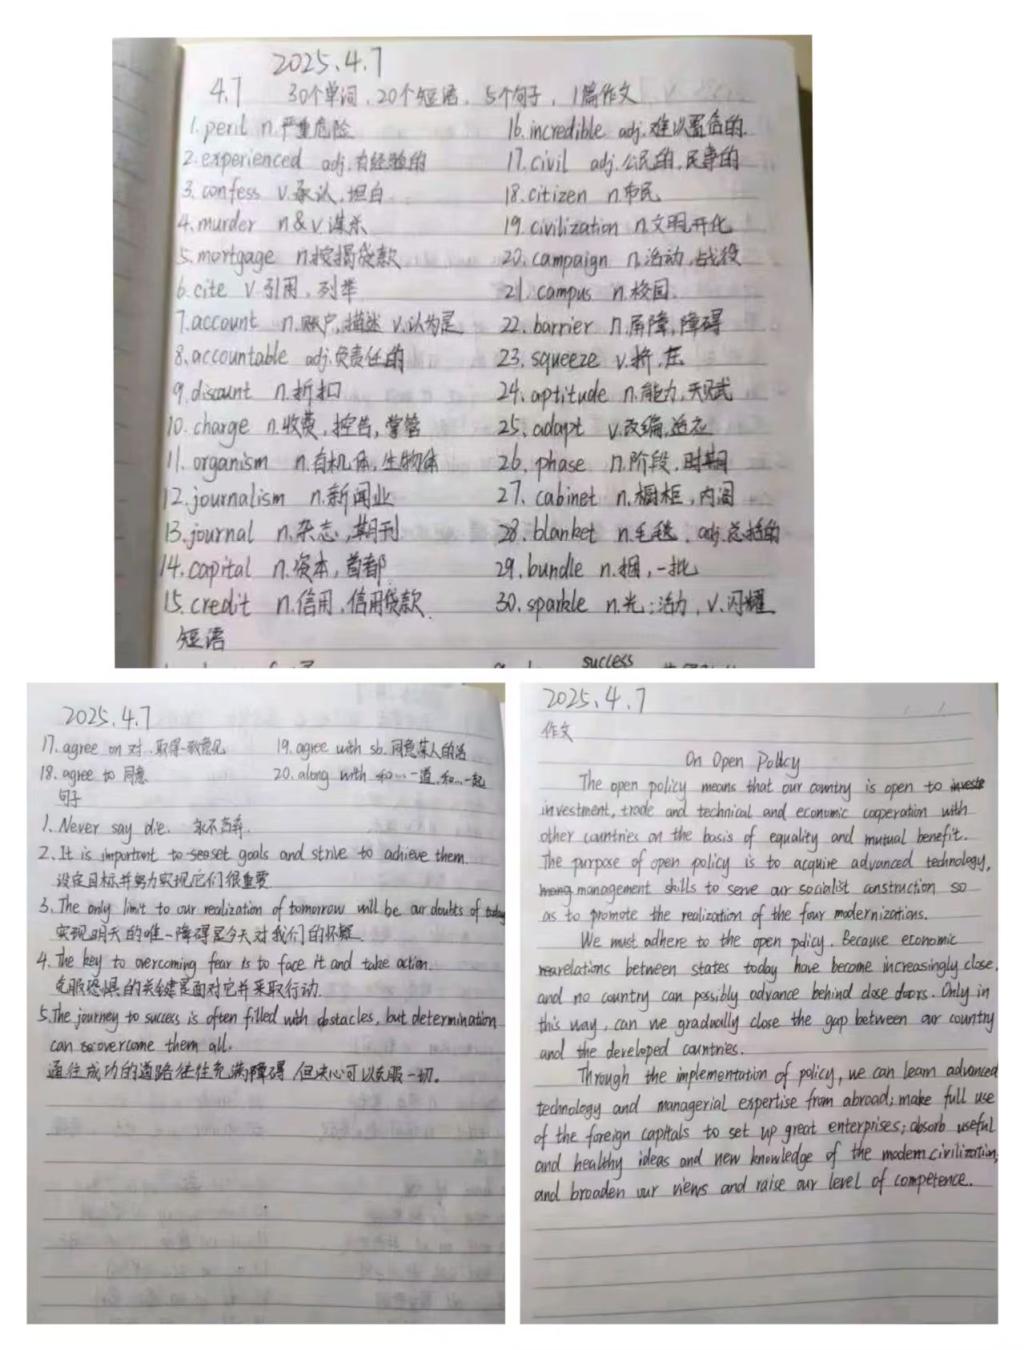 2025.4.7
4.7 30个单词、20个短语、5个句子、1篇作文
1. peril n.严重危险
2. experienced adj.有经验的
3. confess v.承认,坦白
4. murder n&v.谋杀
5. mortgage n.按揭贷款
6. cite v.引用,列举
7. account n.账户,描述 v.认为是
8. accountable adj.负责任的
9. discount n.折扣
10. charge n.收费,控告,掌管
11. organism n.有机体,生物体
12. journalism n.新闻业
13. journal n.杂志,期刊
14. capital n.资本,首都
15. credit n.信用,信用贷款
16. incredible adj.难以置信的.
17. civil adj.公民的,民事的
18. citizen n.市民
19. civilization n.文明,开化
20. campaign n.活动,战役
21. campus n.校园.
22. barrier n.屏障,障碍
23. squeeze v.挤,压
24. aptitude n.能力,天赋
25. adapt v.改编,适应
26. phase n.阶段,时期
27. cabinet n.橱柜,内阁
28. blanket n.毛毯, adj.总括的
29. bundle n.捆,一批
30. sparkle n.光;活力, v.闪耀
短语
success
2025.4.7
17. agree on 对..取得一致意见
18. agree to 同意
19. agree with sb. 同意某人的话
20. along with 和…一道,和…一起
句子
1. Never say die. 永不言弃.
2. It is important to set goals and strive to achieve them.
设定目标并努力实现它们很重要.
3. The only limit to our realization of tomorrow will be our doubts of today
实现明天的唯一障碍是今天对我们的怀疑.
4. The key to overcoming fear is to face it and take action.
克服恐惧的关键是面对它并采取行动.
5. The journey to success is often filled with obstacles, but determination
can overcome them all.
通往成功的道路往往充满障碍,但决心可以克服一切。
2025.4.7
作文
On Open Policy
The open policy means that our country is open to
investment, trade and technical and economic cooperation with
other countries on the basis of equality and mutual benefit.
The purpose of open policy is to acquire advanced technology,
management skills to serve our socialist construction so
as to promote the realization of the four modernizations.
We must adhere to the open policy. Because economic
relations between states today have become increasingly close,
and no country can possibly advance behind close doors. Only in
this way, can we gradually close the gap between our country
and the developed countries.
Through the implementation of policy, we can learn advanced
technology and managerial expertise from abroad; make full use
of the foreign capitals to set up great enterprises; absorb useful
and healthy ideas and new knowledge of the modern civilization,
and broaden our views and raise our level of competence.